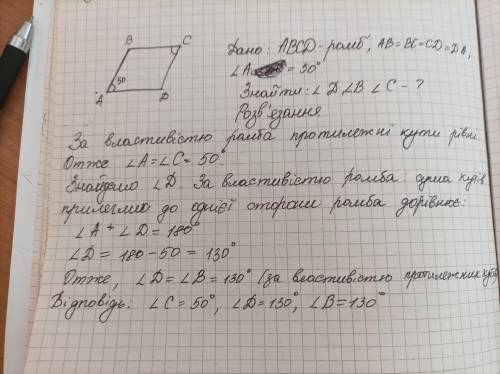 B C
50
A D
Дано: ABCD - ромб, AB = BC = CD = DA,
∠A = 50°
Знайти: ∠D, ∠B ∠C - ?
Розв'язання
За властивістю ромба протилежні кути рівні
Отже ∠A = ∠C = 50°
Знайдемо ∠D. За властивістю ромба: сума кутів
прилеглих до однієї сторони ромба дорівнює:
∠A + ∠D = 180°
∠D = 180 - 50 = 130°
Отже, ∠D = ∠B = 130° (за властивістю протилежних
Відповідь: ∠C = 50°, ∠D = 130°, ∠B = 130°